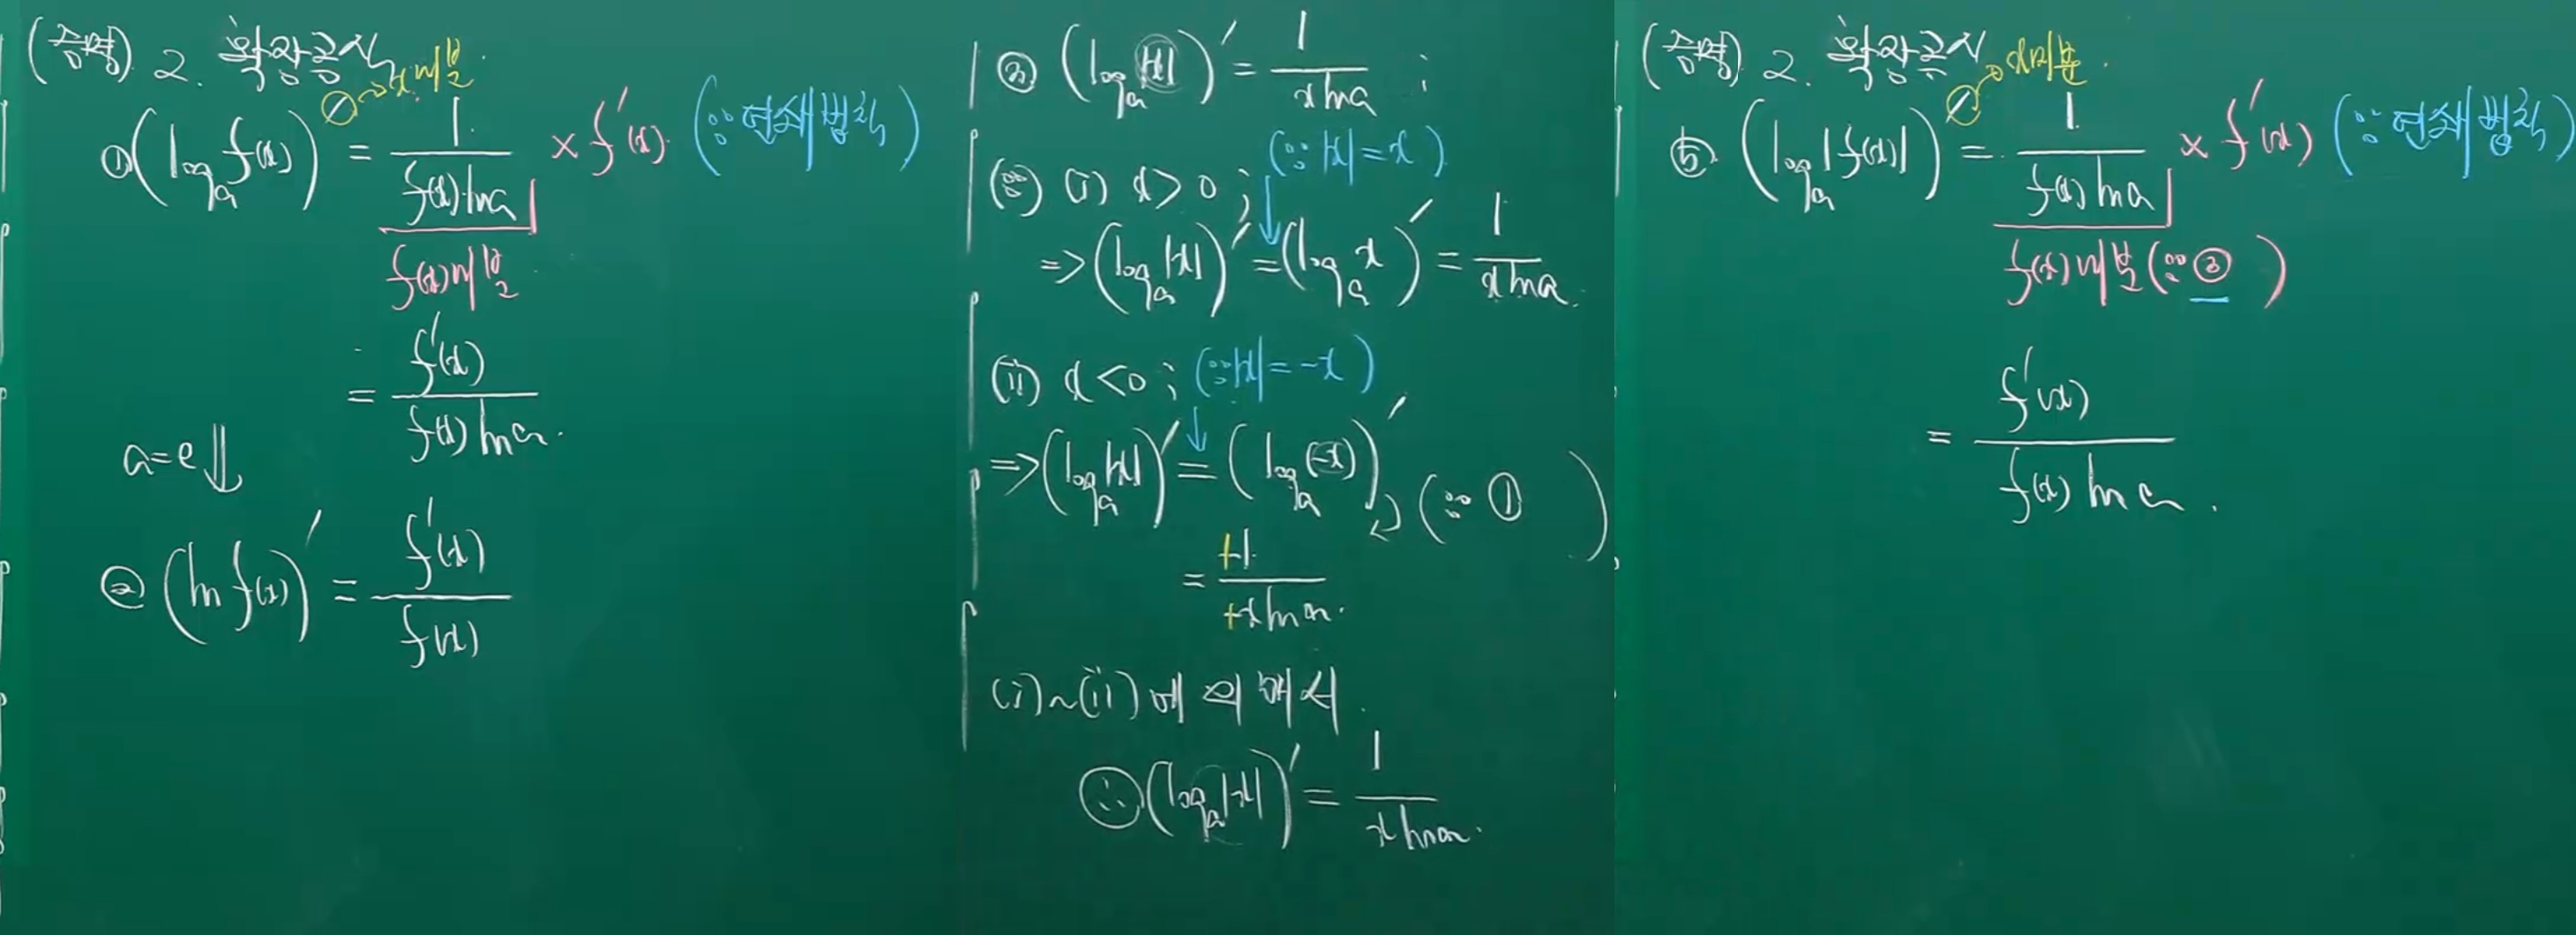 (증명) 2. 확장공식
x미분.
① (log_a f(x))′ = 1/(f(x) ln a) × f′(x). (∵ 연쇄법칙)
f(x)미분
= f′(x)/(f(x) ln a).
a=e ⇓
② (ln f(x))′ = f′(x)/f(x)
③ (log_a |x|)′ = 1/(x ln a) ;
(∵ |x| = x)
(∵) (i) x > 0 ;
=> (log_a |x|)′ = (log_a x)′ = 1/(x ln a).
(ii) x < 0 ; (∵ |x| = -x)
=> (log_a |x|)′ = (log_a (-x))′ (∵ ①)
= +1/(+x ln a).
(i)~(ii)에 의해서.
∴ (log_a |x|)′ = 1/(x ln a).
(증명) 2. 확장공식
x미분.
⑤ (log_a |f(x)|)′ = 1/(f(x) ln a) × f′(x) (∵ 연쇄법칙)
f(x)미분 (∵ ③)
= f′(x)/(f(x) ln a).